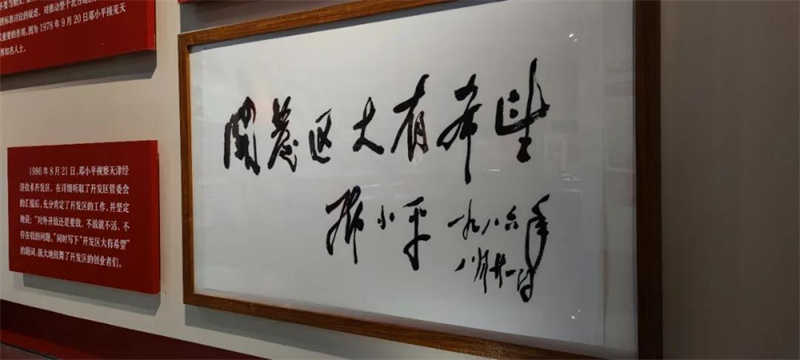 标准讨论的疑虑，对推动整个北方地
重要的作用。图为1978年9月20日邓小平接见天
部知名人士。
1986年8月21日，邓小平视察天津经
济技术开发区，在详细听取了开发区管委会
的汇报后，充分肯定了开发区的工作，并坚定
地说：“对外开放还是要放，不放就不活，不
存在收的问题。”同时写下“开发区大有希望”
的题词，极大地鼓舞了开发区的创业者们。
開發区大有希望
邓小平
一九八六年
八月廿一日